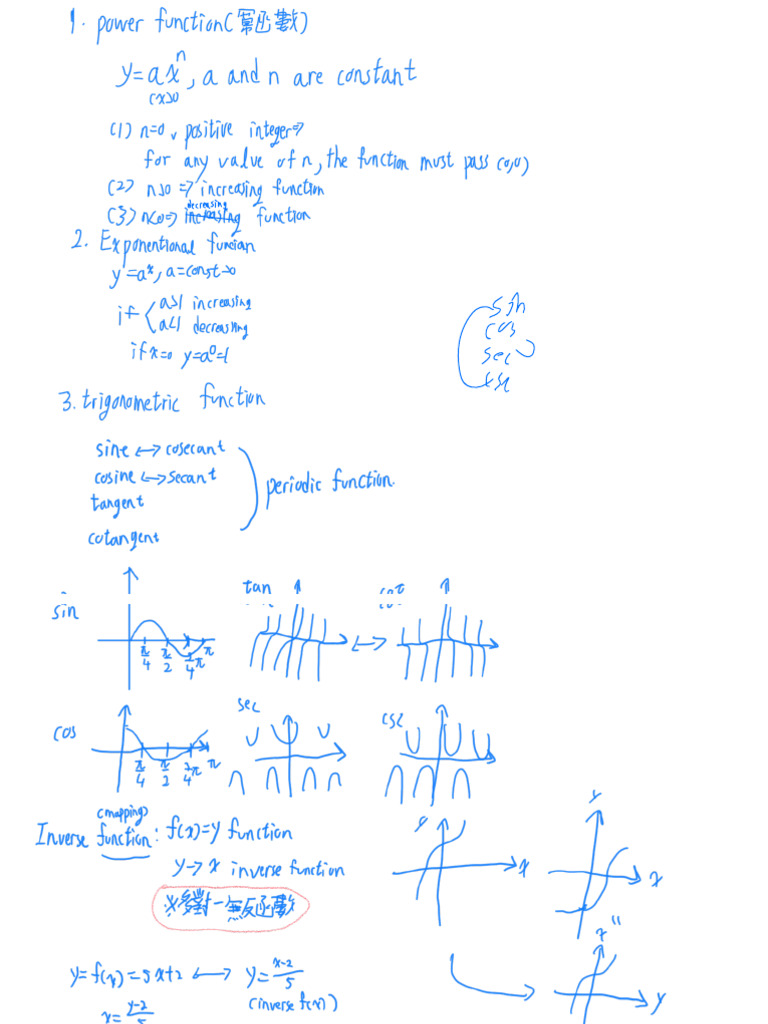 1. power function(冪函數)
y=axⁿ, a and n are constant
(x>0
(1) n=0、positive integer⇒
for any value of n, the function must pass (0,0)
(2) n>0 ⇒ increasing function
(3) n<0⇒ decreasing function
2. Exponentional funcian
y=aˣ, a=const>0
if { a>1 increasing
a<1 decreasing
if x=0 y=a⁰=1
sin
cos
sec
csc
3. trigonometric function
sine ↔ cosecant
cosine ↔ secant
tangent
cotangent
periodic function.
sin
π/4 π/2 3/4π π
tan
↔
cot
cos
π/4 π/2 3/4π π
sec
csc
(mapping)
Inverse function: f(x)=y function
y→x inverse function
※多對一無反函數
y x
y x
x" y
y=f(x)=5x+2 ↔ y=x-2/5
(inverse f(x))
x=y-2/5